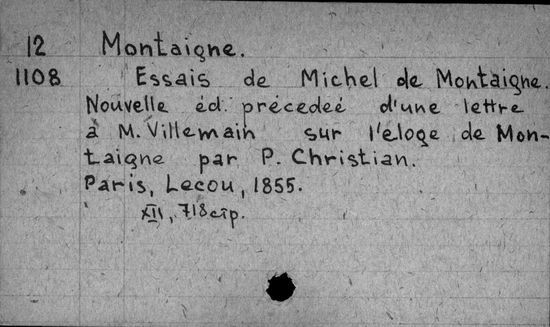 12 Montaigne.
1108 Essais de Michel de Montaigne.
Nouvelle éd. précedeé d'une lettre
à M. Villemain sur l'éloge de Mon-
taigne par P. Christian.
Paris, Lecou, 1855.
XII, 718 стр.